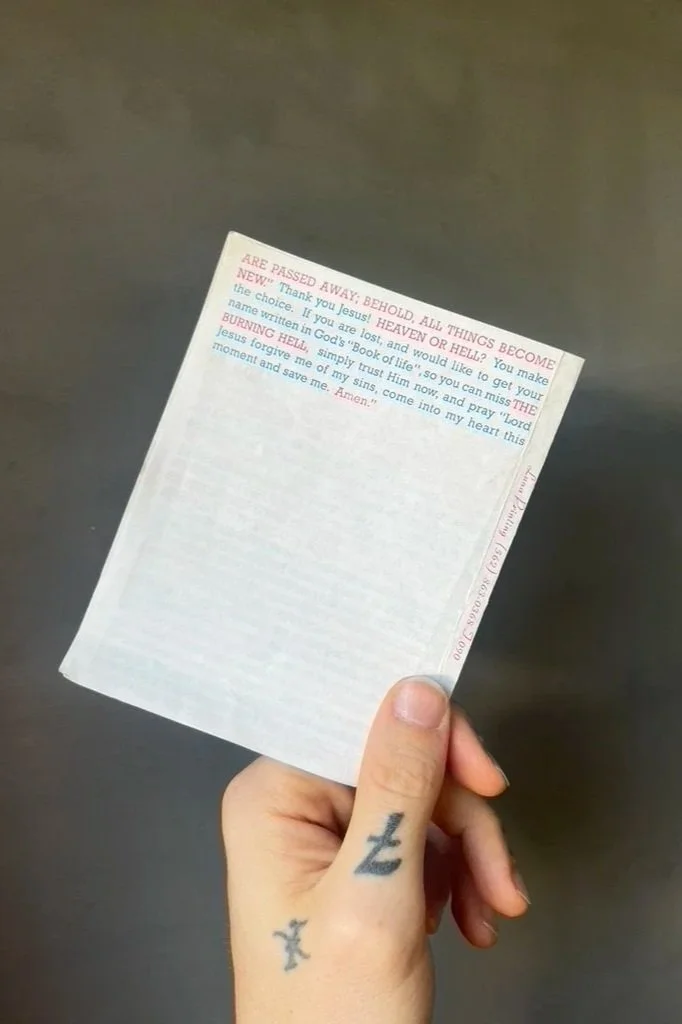 ARE PASSED AWAY; BEHOLD, ALL THINGS BECOME
NEW." Thank you Jesus! HEAVEN OR HELL? You make
the choice. If you are lost, and would like to get your
name written in God's "Book of life", so you can miss THE
BURNING HELL, simply trust Him now, and pray "Lord
Jesus forgive me of my sins, come into my heart this
moment and save me. Amen."
Luna Printing (562) 863-0368